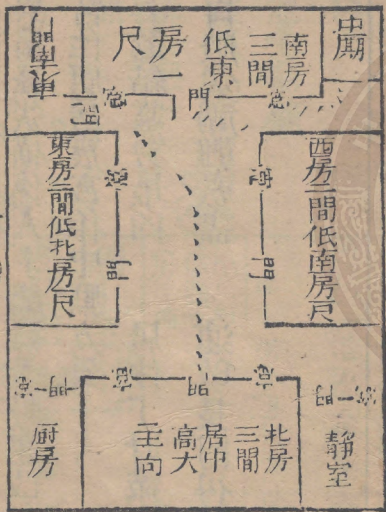 中廟
南房
三間
低東
房一
尺
東南門
窓
門
窓
門
西房三間低南房尺
窓
門
東房三間低北房一尺
窓
門
窓
門
窓
門
窓
門
窓
靜室
北房
三間
居中
高大
主向
厨房